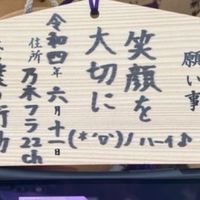 願い事
笑顔を
大切に
(*'▽')ノハーイ♪
令和四年六月十一日
住所 乃木フラ22ch